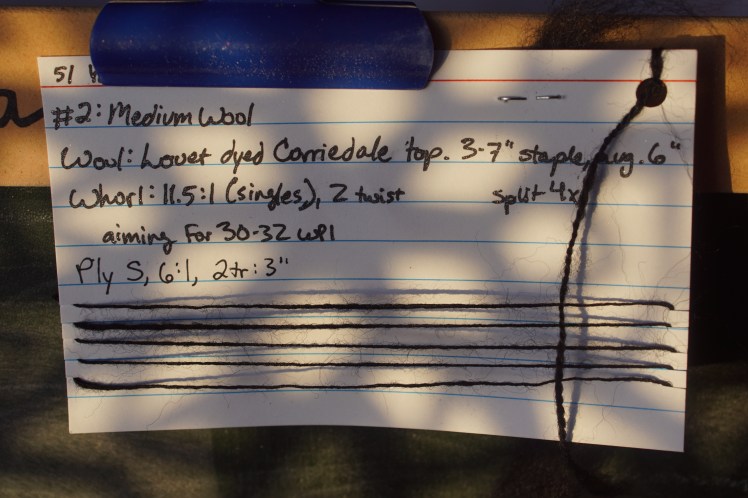 51
#2: Medium Wool
Wool: Louet dyed Corriedale top. 3-7" staple, avg. 6"
Whorl: 11.5:1 (singles), Z twist split 4x
aiming for 30-32 WPI
Ply S, 6:1, 2tr: 3"